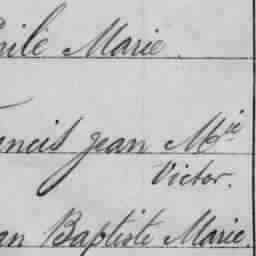 mile Marie
ancis jean Mie
Victor.
an Baptiste Marie.